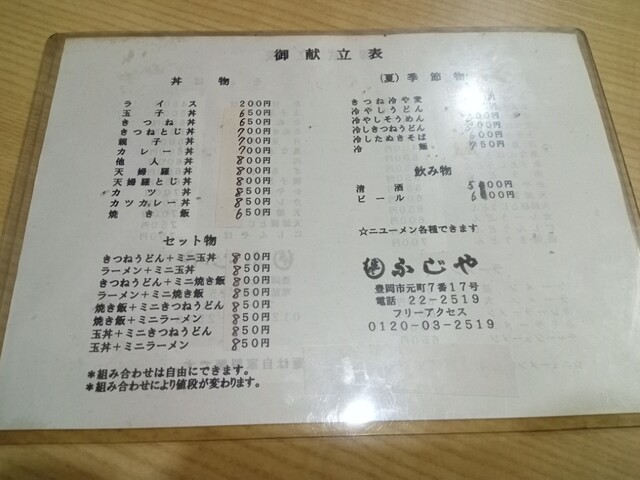 御献立表
丼物
ライス 200円
玉子丼 650円
きつね丼 650円
きつねとじ丼 700円
親子丼 700円
カレー丼 700円
他人丼 800円
天婦羅丼 800円
天婦羅とじ丼 800円
カツ丼 850円
カツカレー丼 850円
焼き飯 650円
セット物
きつねうどん+ミニ玉丼 800円
ラーメン+ミニ玉丼 850円
きつねうどん+ミニ焼き飯 800円
ラーメン+ミニ焼き飯 850円
焼き飯+ミニきつねうどん 850円
焼き飯+ミニラーメン 850円
玉丼+ミニきつねうどん 850円
玉丼+ミニラーメン 850円
*組み合わせは自由にできます。
*組み合わせにより値段が変わります。
(夏)季節物
きつね冷や麦 円
冷やしうどん 円
冷やしそうめん 00円
冷しきつねうどん 00円
冷したぬきそば 600円
冷麺 750円
飲み物
清酒 500円
ビール 600円
☆ニューメン各種できます
ふじや
豊岡市元町7番17号
電話 22-2519
フリーアクセス
0120-03-2519